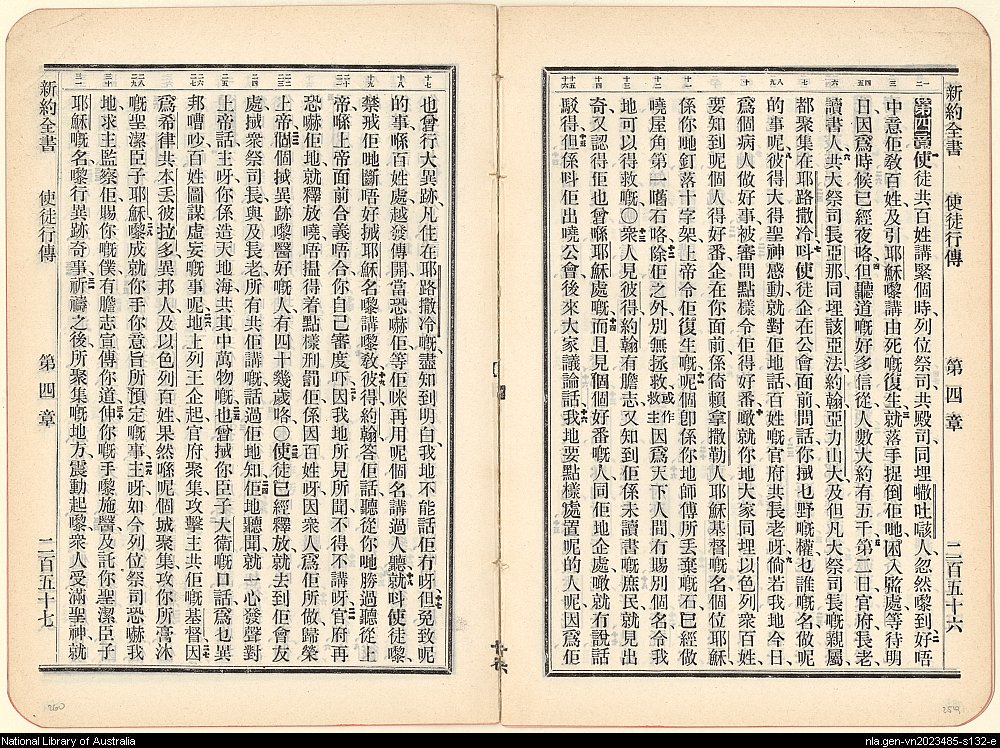 新約全書 使徒行傳 第四章 二百五十六
第四章使徒共百姓講緊個時列位祭司共殿司同埋撒吐該人忽然嚟到好唔
中意佢敎百姓及引耶穌嚟講由死嘅復生就落手捉倒佢哋困入監處等待明
日因爲時候已經夜咯但聽道嘅好多信從人數大約有五千第二日官府長老
讀書人共大祭司長亞那同埋該亞法約翰亞力山大及但凡大祭司長嘅親屬
都聚集在耶路撒冷呌使徒企在公會面前問話你㧒乜野嘅權乜誰嘅名做呢
的事呢彼得大得聖神感動就對佢地話百姓嘅官府共長老呀倘若我地今日
爲個病人做好事被審問點樣令佢得好番嗽就你地大家同埋以色列衆百姓
要知到呢個人得好番企在你面前係倚賴拿撒勒人耶穌基督嘅名個位耶穌
係你哋釘落十字架上帝令佢復生嘅呢個卽係你地師傅所丟棄嘅石已經做
曉屋角第一嚿石咯除佢之外別無拯救或作救主因爲天下人間有賜別個名令我
地可以得救嘅〇衆人見彼得約翰有膽志又知到佢係未讀書嘅庶民就見出
奇又認得佢也曾喺耶穌處嘅而且見個個好番嘅人同佢地企處嗽就冇說話
駁得但係呌佢出曉公會後來大家議論話我地要點樣處置呢的人呢因爲佢
新約全書 使徒行傳 第四章 二百五十七
也曾行大異跡凡住在耶路撒冷嘅盡知到明白我地不能話佢冇呀但免致呢
的事喺百姓處越發傳開當恐嚇佢等佢咪再用呢個名講過人聽就呌使徒嚟
禁戒佢哋斷唔好㧒耶穌名嚟講嚟敎彼得約翰答佢話聽從你哋勝過聽從上
帝喺上帝面前合義唔合你自己審度吓因我地所見所聞不得不講呀官府再
恐嚇佢地就釋放曉唔揾得着點樣刑罰佢係因百姓呀因衆人爲佢所做歸榮
上帝個個㧒異跡嚟醫好嘅人有四十幾歲咯〇使徒已經釋放就去到佢會友
處㧒衆祭司長與及長老所有共佢講嘅話過佢地知佢地聽聞就一心發聲對
上帝話主呀你係造天地海共其中萬物嘅也曾㧒你臣子大衞嘅口話爲乜異
邦嘈吵百姓圖謀虛妄嘅事呢地上列王企起官府聚集攻擊主共佢嘅基督因
爲希律共本丟彼拉多異邦人及以色列百姓果然喺呢個城聚集攻你所膏沐
嘅聖潔臣子耶穌嚟成就你手你意旨所預定嘅事主呀如今列位祭司恐嚇我
地求主監察佢賜你嘅僕有膽志宣傳你道伸你嘅手嚟施醫及託你聖潔臣子
耶穌嘅名嚟行異跡奇事祈禱之後所聚集嘅地方震動起嚟衆人受滿聖神就
260
259
National Library of Australia
nla.gen-vn2023485-s132-e